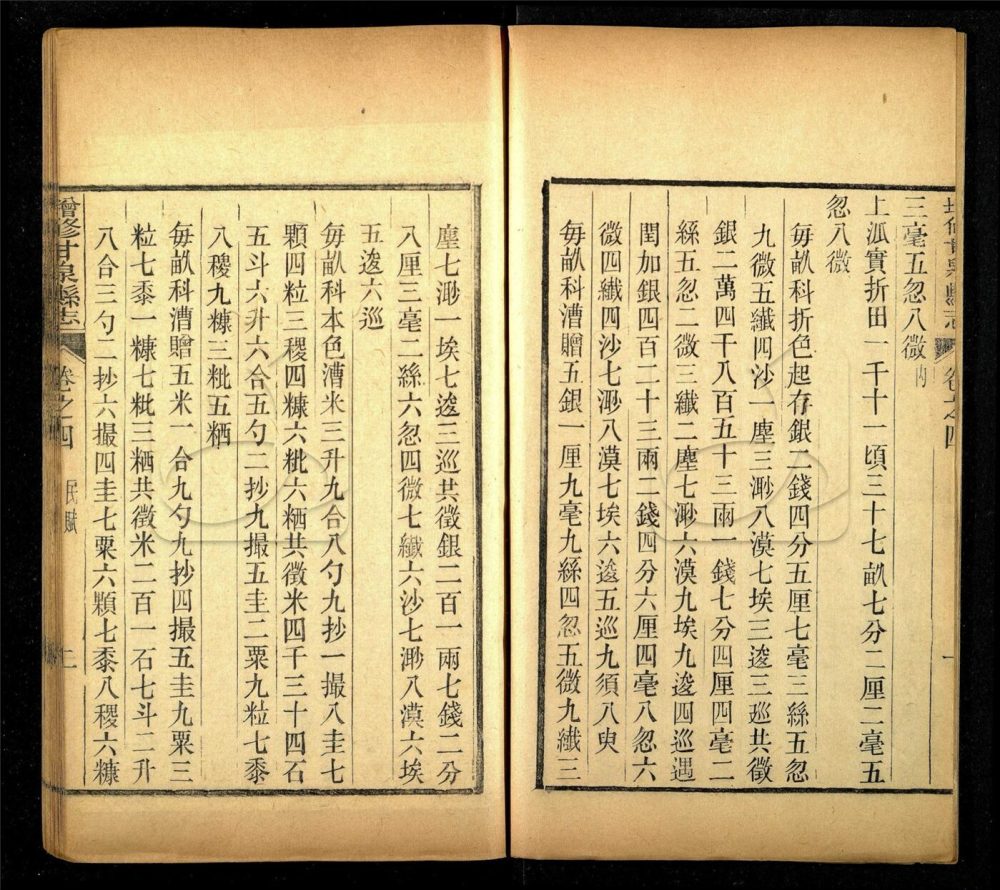 增修甘泉縣志
卷之四
三毫五忽八微內
上泒實折田一千十一頃三十七畝七分二厘二毫五
忽八微
每畝科折色起存銀二錢四分五厘七毫三絲五忽
九微五纖四沙一塵三渺八漠七埃三逡三巡共徵
銀二萬四千八百五十三兩一錢七分四厘四毫二
絲五忽二微三纖二塵七渺六漠九埃九逡四巡遇
閏加銀四百二十三兩二錢四分六厘四毫八忽六
微四纖四沙七渺八漠七埃六逡五巡九須八臾
每畝科漕贈五銀一厘九毫九絲四忽五微九纖三
塵七渺一埃七逡三巡共徵銀二百一兩七錢二分
八厘三毫二絲六忽四微七纖六沙七渺八漠六埃
五逡六巡
每畝科本色漕米三升九合八勺九抄一撮八圭七
顆四粒三稷四糠六粃六粞共徵米四千三十四石
五斗六升六合五勺二抄九撮五圭二粟九粒七黍
八稷九糠三粃五粞
每畝科漕贈五米一合九勺九抄四撮五圭九粟三
粒七黍一糠七粃三粞共徵米二百一石七斗二升
八合三勺二抄六撮四圭七粟六顆七黍八稷六糠
增修甘泉縣志
卷之四
民賦
二